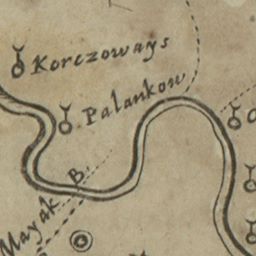 Korczoways
Palankow
B.
Mayak